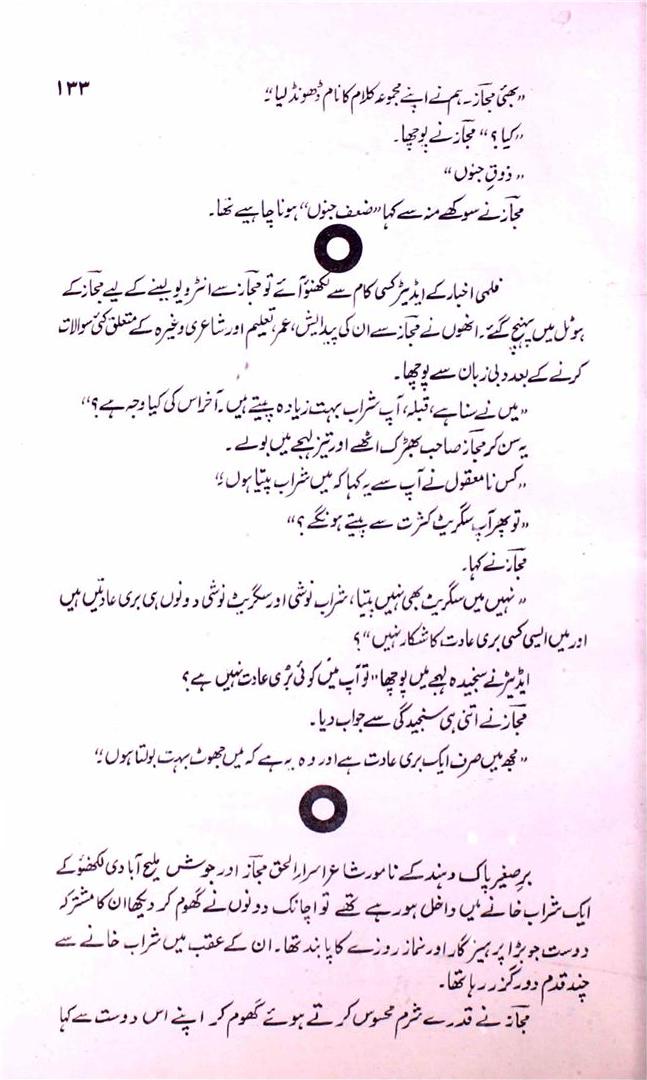 ۱۳۳
”بھئی مجاز۔ ہم نے اپنے مجموعہ کلام کا نام ڈھونڈ لیا“۔
”کیا؟“ مجاز نے پوچھا۔
”ذوقِ جنوں“
مجاز نے سوکھے منہ سے کہا ”ضعف جنوں“ ہونا چاہیے تھا۔
فلمی اخبار کے ایڈیٹر کسی کام سے لکھنؤ آئے تو مجاز سے انٹرویو لینے کے لیے مجاز کے
ہوٹل میں پہنچ گئے۔ انھوں نے مجاز سے ان کی پیدایش، عمر، تعلیم اور شاعری وغیرہ کے متعلق کئی سوالات
کرنے کے بعد دبی زبان سے پوچھا۔
”میں نے سنا ہے، قبلہ، آپ شراب بہت زیادہ پیتے ہیں۔ آخر اس کی کیا وجہ ہے؟“
یہ سن کر مجاز صاحب بھڑک اٹھے اور تیز لہجے میں بولے۔
”کس نامعقول نے آپ سے یہ کہا کہ میں شراب پیتا ہوں؟“
”تو پھر آپ سگریٹ کثرت سے پیتے ہونگے؟“
مجاز نے کہا۔
”نہیں میں سگریٹ بھی نہیں پیتا، شراب نوشی اور سگریٹ نوشی دونوں ہی بری عادتیں ہیں
اور میں ایسی کسی بری عادت کا شکار نہیں“؟
ایڈیٹر نے سنجیدہ لہجے میں پوچھا ”تو آپ میں کوئی بُری عادت نہیں ہے؟
مجاز نے اتنی ہی سنجیدگی سے جواب دیا۔
”مجھ میں صرف ایک بری عادت ہے اور وہ یہ ہے کہ میں جھوٹ بہت بولتا ہوں۔“
برِصغیر پاک و ہند کے نامور شاعر اسرار الحق مجاز اور جوش ملیح آبادی لکھنؤ کے
ایک شراب خانے میں داخل ہو رہے تھے تو اچانک دونوں نے گھوم کر دیکھا ان کا مشترکہ
دوست جو بڑا پرہیزگار اور نماز روزے کا پابند تھا۔ ان کے عقب میں شراب خانے سے
چند قدم دور گزر رہا تھا۔
مجاز نے قدرے شرم محسوس کرتے ہوئے گھوم کر اپنے اس دوست سے کہا